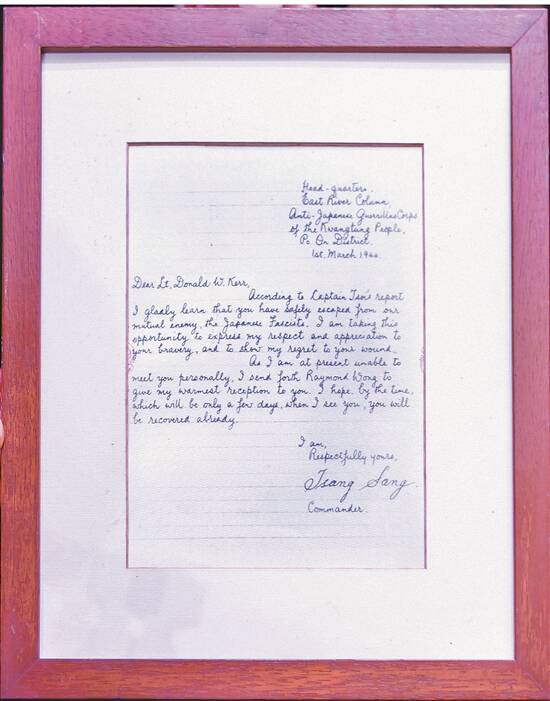 Head-quarter,
East River Column,
Anti-Japanese Guerrillas Corps
of the Kwangtung People,
Po On District.
1st. March 1944.
Dear Lt. Donald W. Kerr,
According to Captain Tsoi's report
I gladly learn that you have safely escaped from our
mutual enemy, the Japanese Fascists. I am taking this
opportunity to express my respect and appreciation to
your bravery, and to show my regret to your wound.
As I am at present unable to
meet you personally, I send forth Raymond Wong to
give my warmest reception to you. I hope, by the time,
which will be only a few days, when I see you, you will
be recovered already.
I am,
Respectfully yours,
Tsang Sang.
Commander.